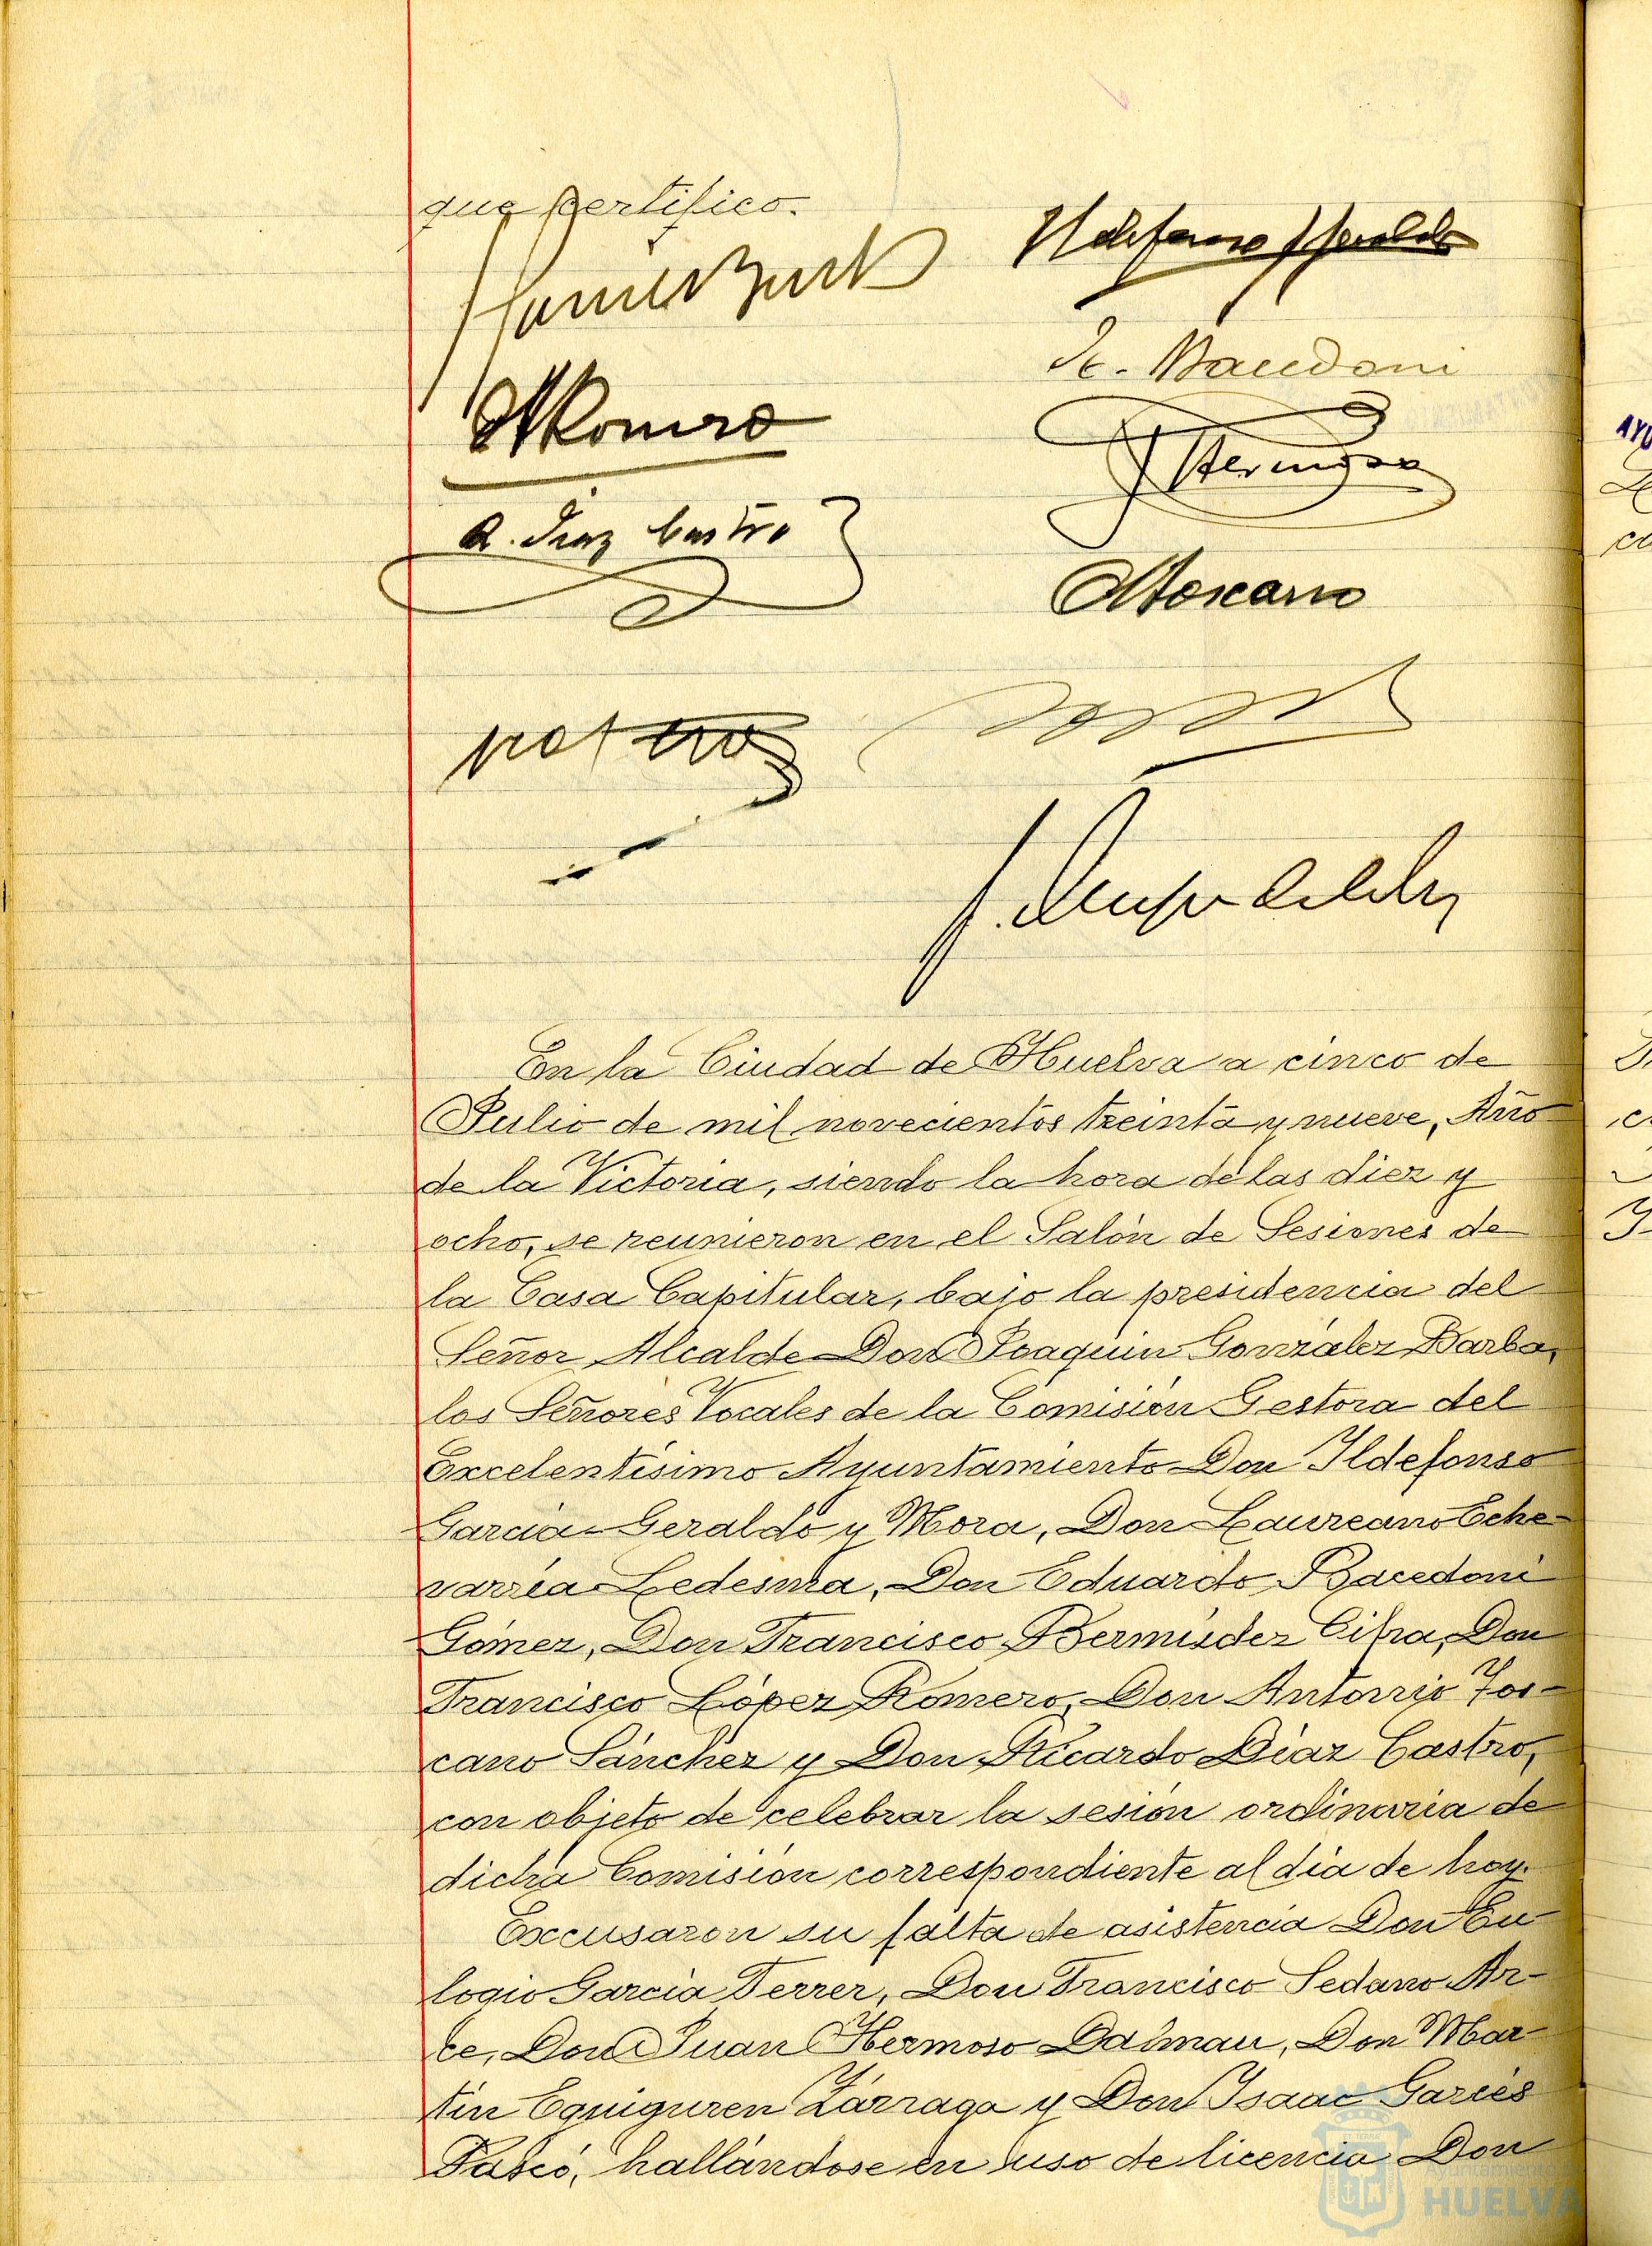 que certifico.
Ildefonso Geraldo
E. Bacedoni
Romero
Hermoso
R. Diaz Castro
Toscano
En la Ciudad de Huelva a cinco de
Julio de mil novecientos treinta y nueve, Año
de la Victoria, siendo la hora de las diez y
ocho, se reunieron en el Salón de Sesiones de
la Casa Capitular, bajo la presidencia del
Señor Alcalde Don Joaquin González Barba,
los Señores Vocales de la Comisión Gestora del
Excelentísimo Ayuntamiento Don Ildefonso
Garcia-Geraldo y Mora, Don Laureano Eche-
varria Ledesma, Don Eduardo Bacedoni
Gómez, Don Francisco Bermúdez Cifra, Don
Francisco López Romero, Don Antonio Tos-
cano Sánchez y Don Ricardo Diaz Castro,
con objeto de celebrar la sesión ordinaria de
dicha Comisión correspondiente al dia de hoy.
Excusaron su falta de asistencia Don Eu-
logio Garcia Ferrer, Don Francisco Sedano Ar-
ce, Don Juan Hermoso Dalmau, Don Mar-
tin Eguiguren Zárraga y Don Isaac Garcés
hallándose en uso de licencia Don
Ayuntamiento de
HUELVA